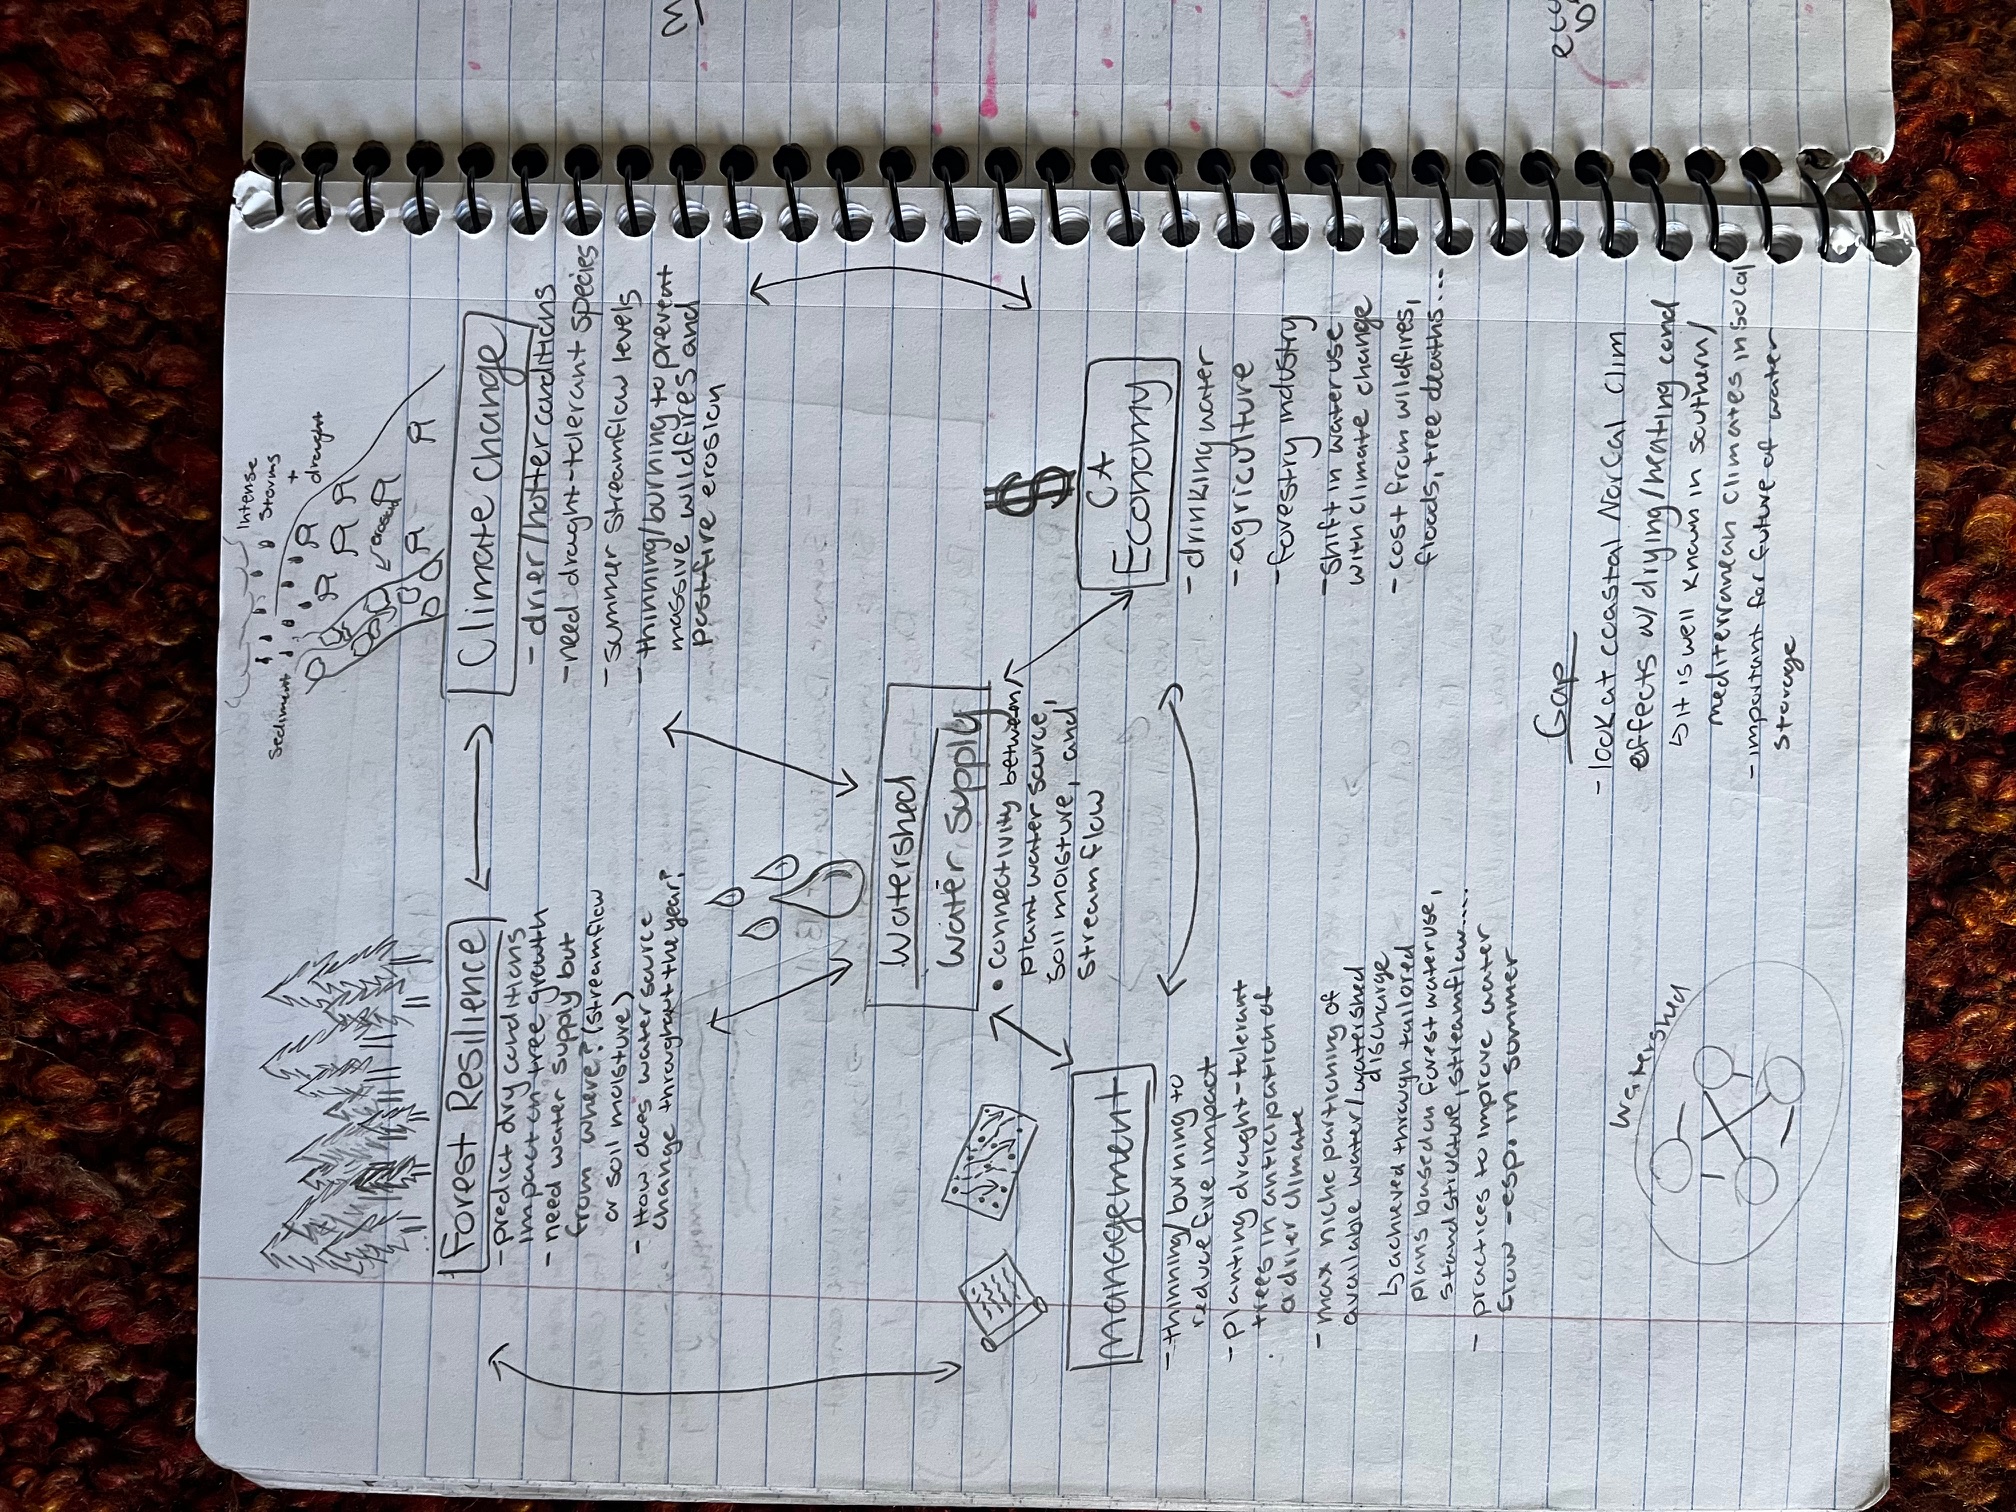 Intense
storms
+
drought
sediment
Forest Resilience
- predict dry conditions
impact on tree growth
- need water supply but
from where? (streamflow
or soil moisture)
- How does water source
change throughout the year?
Climate Change
- drier/hotter conditions
- need drought-tolerant species
- summer streamflow levels
- thinning/burning to prevent
massive wildfires and
post-fire erosion
Watershed
Water Supply
• connectivity between
plant water source,
soil moisture, and
streamflow
management
- thinning/burning to
reduce fire impact
- planting drought-tolerant
trees in anticipation of
a drier climate
- max niche partitioning of
available water/watershed
discharge
↳ achieved through tailored
plans based on forest water use,
stand structure, streamflow....
- practices to improve water
flow - esp. in summer
$
CA
Economy
- drinking water
- agriculture
- forestry industry
- shift in water use
with climate change
- cost from wildfires,
floods, tree deaths...
Gap
- look at coastal NorCal clim
effects w/ drying/heating cond
↳ it is well known in southern/
mediterranean climates in SoCal
- important for future of water
storage
Watershed